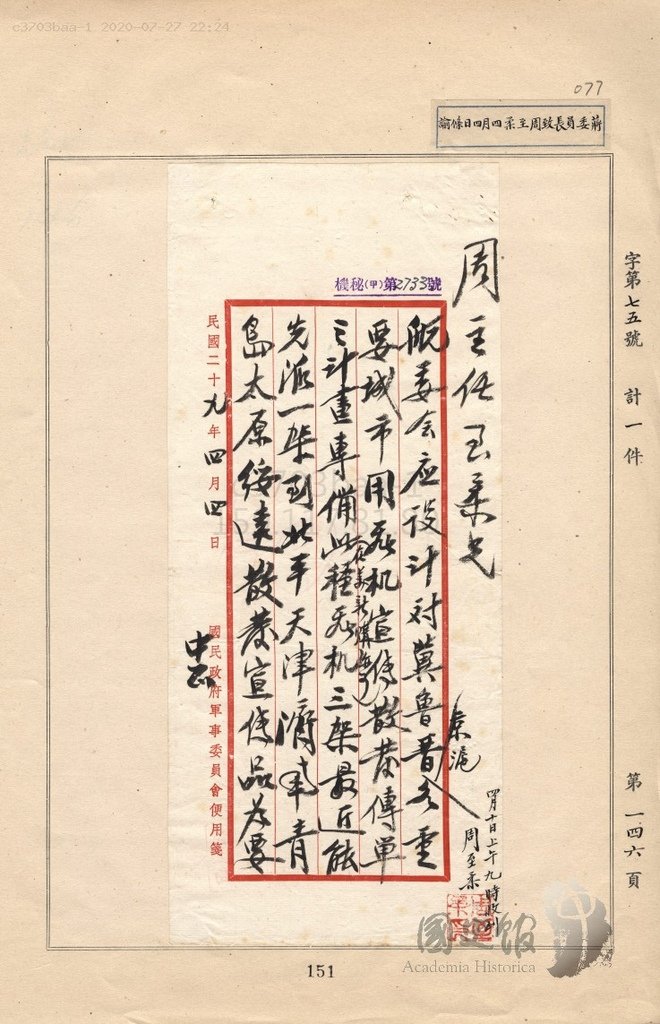 c3703baa-1 2020-07-27 22:24
077
蔣委員長致周至柔四月四日條諭
字第七五號 計一件
第一四六頁
機秘(甲)第2733號
周主任至柔兄
航委会应設计对冀魯晋各重
京滬
要城市用飛机宣傳散發傳單
之计畫專備此種飛机三架最近能
先派一架到北平天津濟南青
島太原綏遠散發宣传品为要
中正
民國二十九年四月四日
國民政府軍事委員會便用箋
四月十日上午九時收到
周至柔
151
國史館
Academia Historica